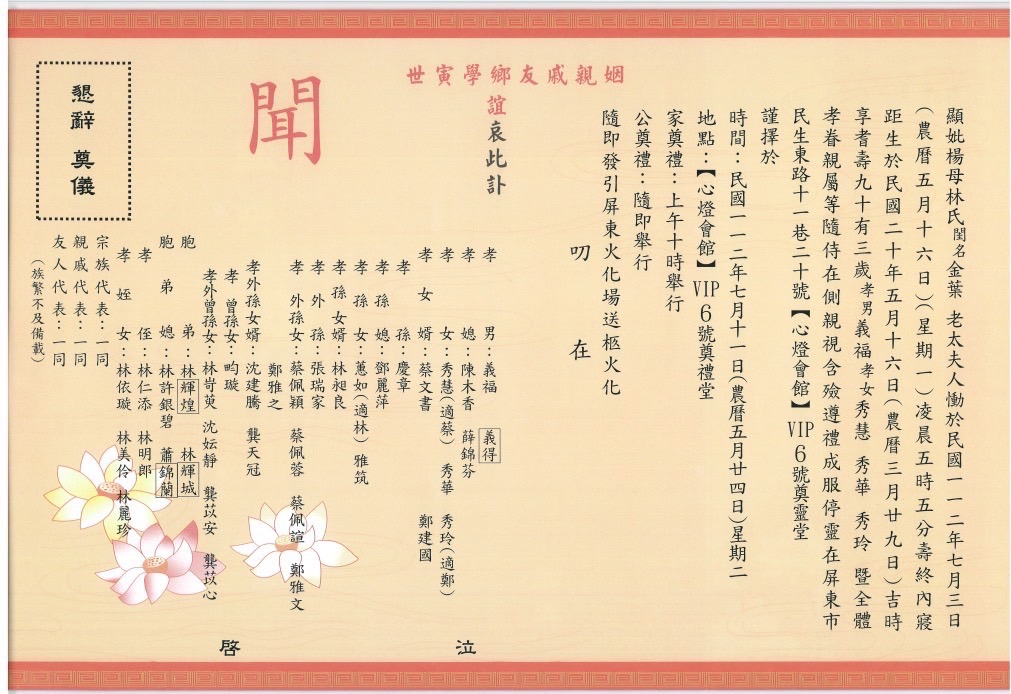 顯妣楊母林氏閨名金葉 老太夫人慟於民國一一二年七月三日
(農曆五月十六日)(星期一)凌晨五時五分壽終內寢
距生於民國二十年五月十六日(農曆三月廿九日)吉時
享耆壽九十有三歲孝男義福孝女秀慧 秀華 秀玲 暨全體
孝眷親屬等隨侍在側親視含殮遵禮成服停靈在屏東市
民生東路十一巷二十號【心燈會館】VIP6號奠靈堂
謹擇於
時間:民國一一二年七月十一日(農曆五月廿四日)星期二
地點:【心燈會館】VIP6號奠禮堂
家奠禮:上午十時舉行
公奠禮:隨即舉行
隨即發引屏東火化場送柩火化
叨 在
姻親戚友鄉學寅世
誼哀此訃
聞
孝 男:義福 義得
孝 媳:陳木香 薛錦芬
孝 女:秀慧(適蔡) 秀華 秀玲(適鄭)
孝女 婿:蔡文書 鄭建國
孝 孫:慶章
孝孫 媳:鄧麗萍
孝孫 女:蕙如(適林) 雅筑
孝孫女婿:林昶良
孝外 孫:張瑞家
孝外孫女:蔡佩穎 蔡佩蓉 蔡佩諠 鄭雅文
鄭雅之
孝外孫女婿:沈建騰 龔天冠
孝曾孫女:昀璇
孝外曾孫女:林岢萸 沈妘靜 龔苡安 龔苡心
胞 弟:林輝煌 林輝城
胞弟 媳:林許銀碧 蕭錦蘭
孝 侄:林仁添 林明郎
孝姪 女:林依璇 林美伶 林麗珍
宗族代表:一同
親戚代表:一同
友人代表:一同
(族繁不及備載)
泣 啓
懇辭 奠儀